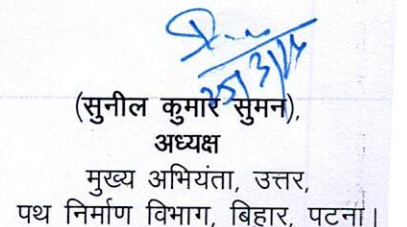 (सुनील कुमार सुमन),
अध्यक्ष
मुख्य अभियंता, उत्तर,
पथ निर्माण विभाग, बिहार, पटना।